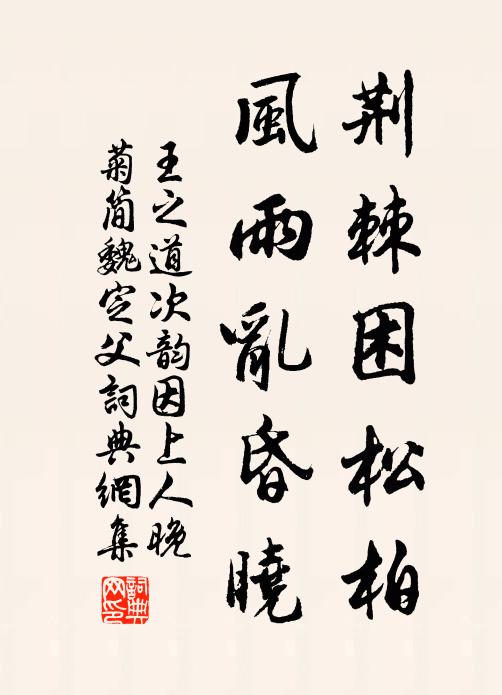 荆棘困松柏
風雨亂昏曉
王之道次韵因上人晚
菊简魏定父詞典網集
詞典網印